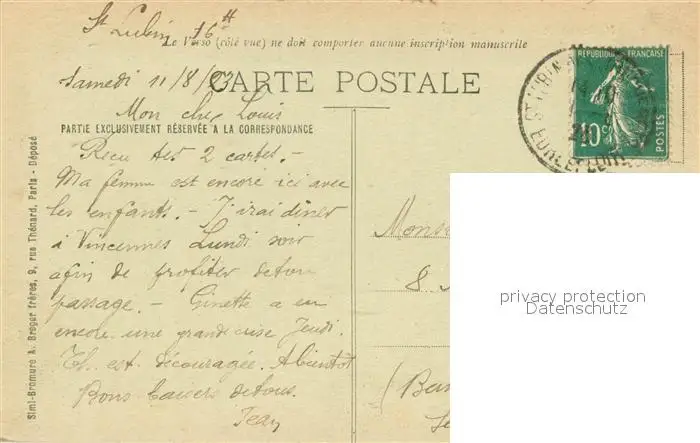 St Lubin 16 H
Le Verso (côté vue) ne doit comporter aucune inscription manuscrite
Samedi 11/8/23
CARTE POSTALE
Mon cher Louis
PARTIE EXCLUSIVEMENT RÉSERVÉE A LA CORRESPONDANCE
Recu tes 2 cartes. -
Ma femme est encore ici avec
les enfants. - J'irai diner
à Vincennes Lundi soir
afin de profiter de ton
passage. - Ginette a eu
encore une grande crise Jeudi.
Th. est découragée. A bientôt
Bons baisers de tous.
Jean
Simi-Bromure A. Breger frères, 9, rue Thénard, Paris - Déposé
REPUBLIQUE FRANCAISE
10 c
POSTES
ST LUBIN
EURE ET LOIR
Mons
8
privacy protection
Datenschutz